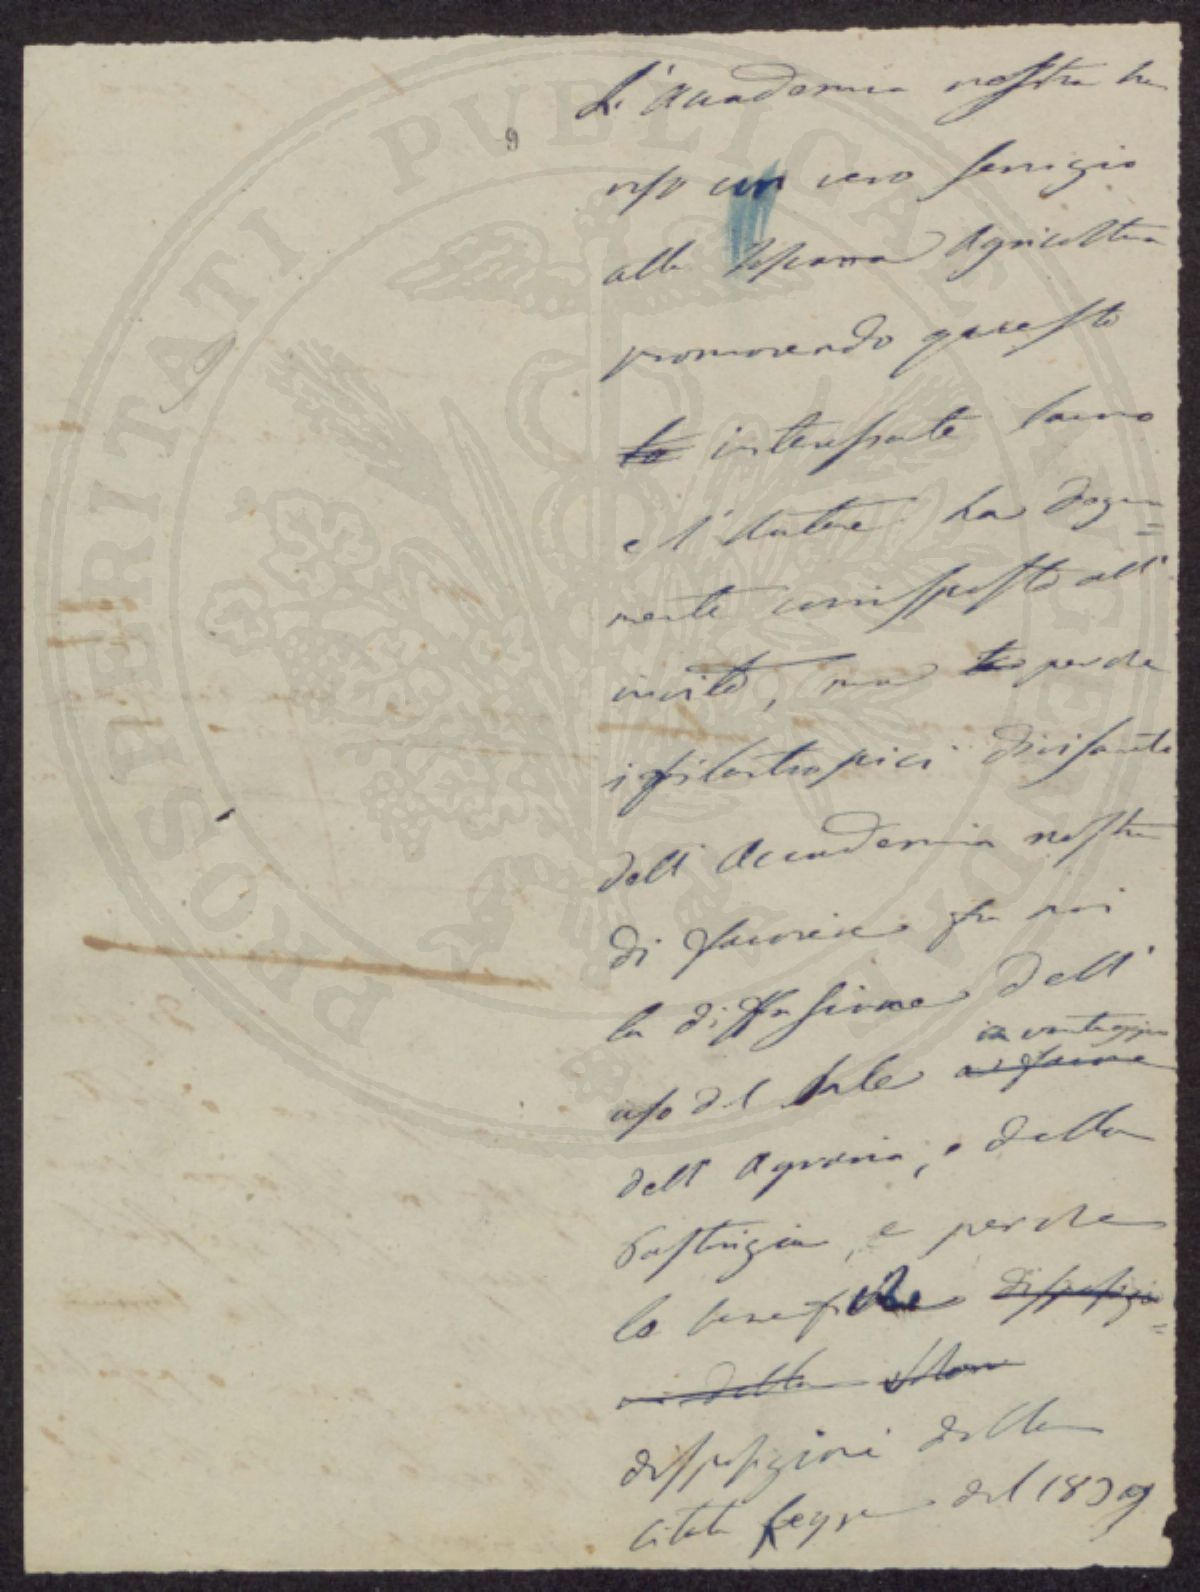 9
L'Accademia nostra ha
reso un vero servigio
alla Toscana Agricoltura
promovendo questo
to interessante lavoro
e l'Autore ha degna=
mente corrisposto all'
invito, ma perche
i filantropici divisamti
dell'Accademia nostra
di favorire fra noi
la diffusione dell'
uso del Sale a favore
in vantaggio
dell'Agraria, e della
Pastorizia, e perche
le benefiche disposizio=
ni della
disposizioni della
citata Legge del 1839
PROSPERITATI PUBLICAE